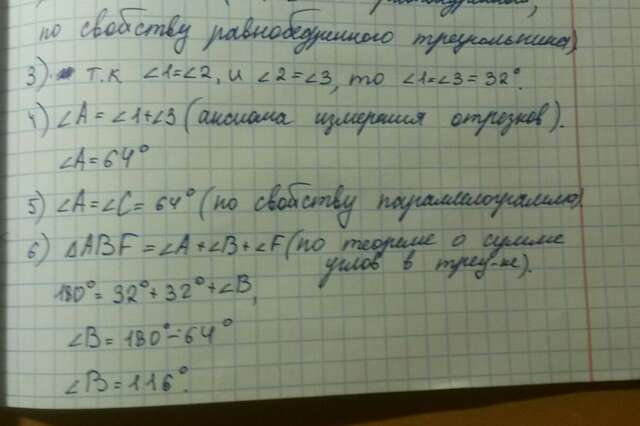 по свойству равнобедренного треугольника)
3) т.к ∠1=∠2, и ∠2=∠3, то ∠1=∠3=32°.
4) ∠A=∠1+∠3 (аксиома измерения отрезков).
∠A=64°
5) ∠A=∠C=64° (по свойству параллелограмма)
6) ΔABF=∠A+∠B+∠F (по теореме о сумме
углов в треу-ке).
180°=32°+32°+∠B,
∠B=180°-64°
∠B=116°.